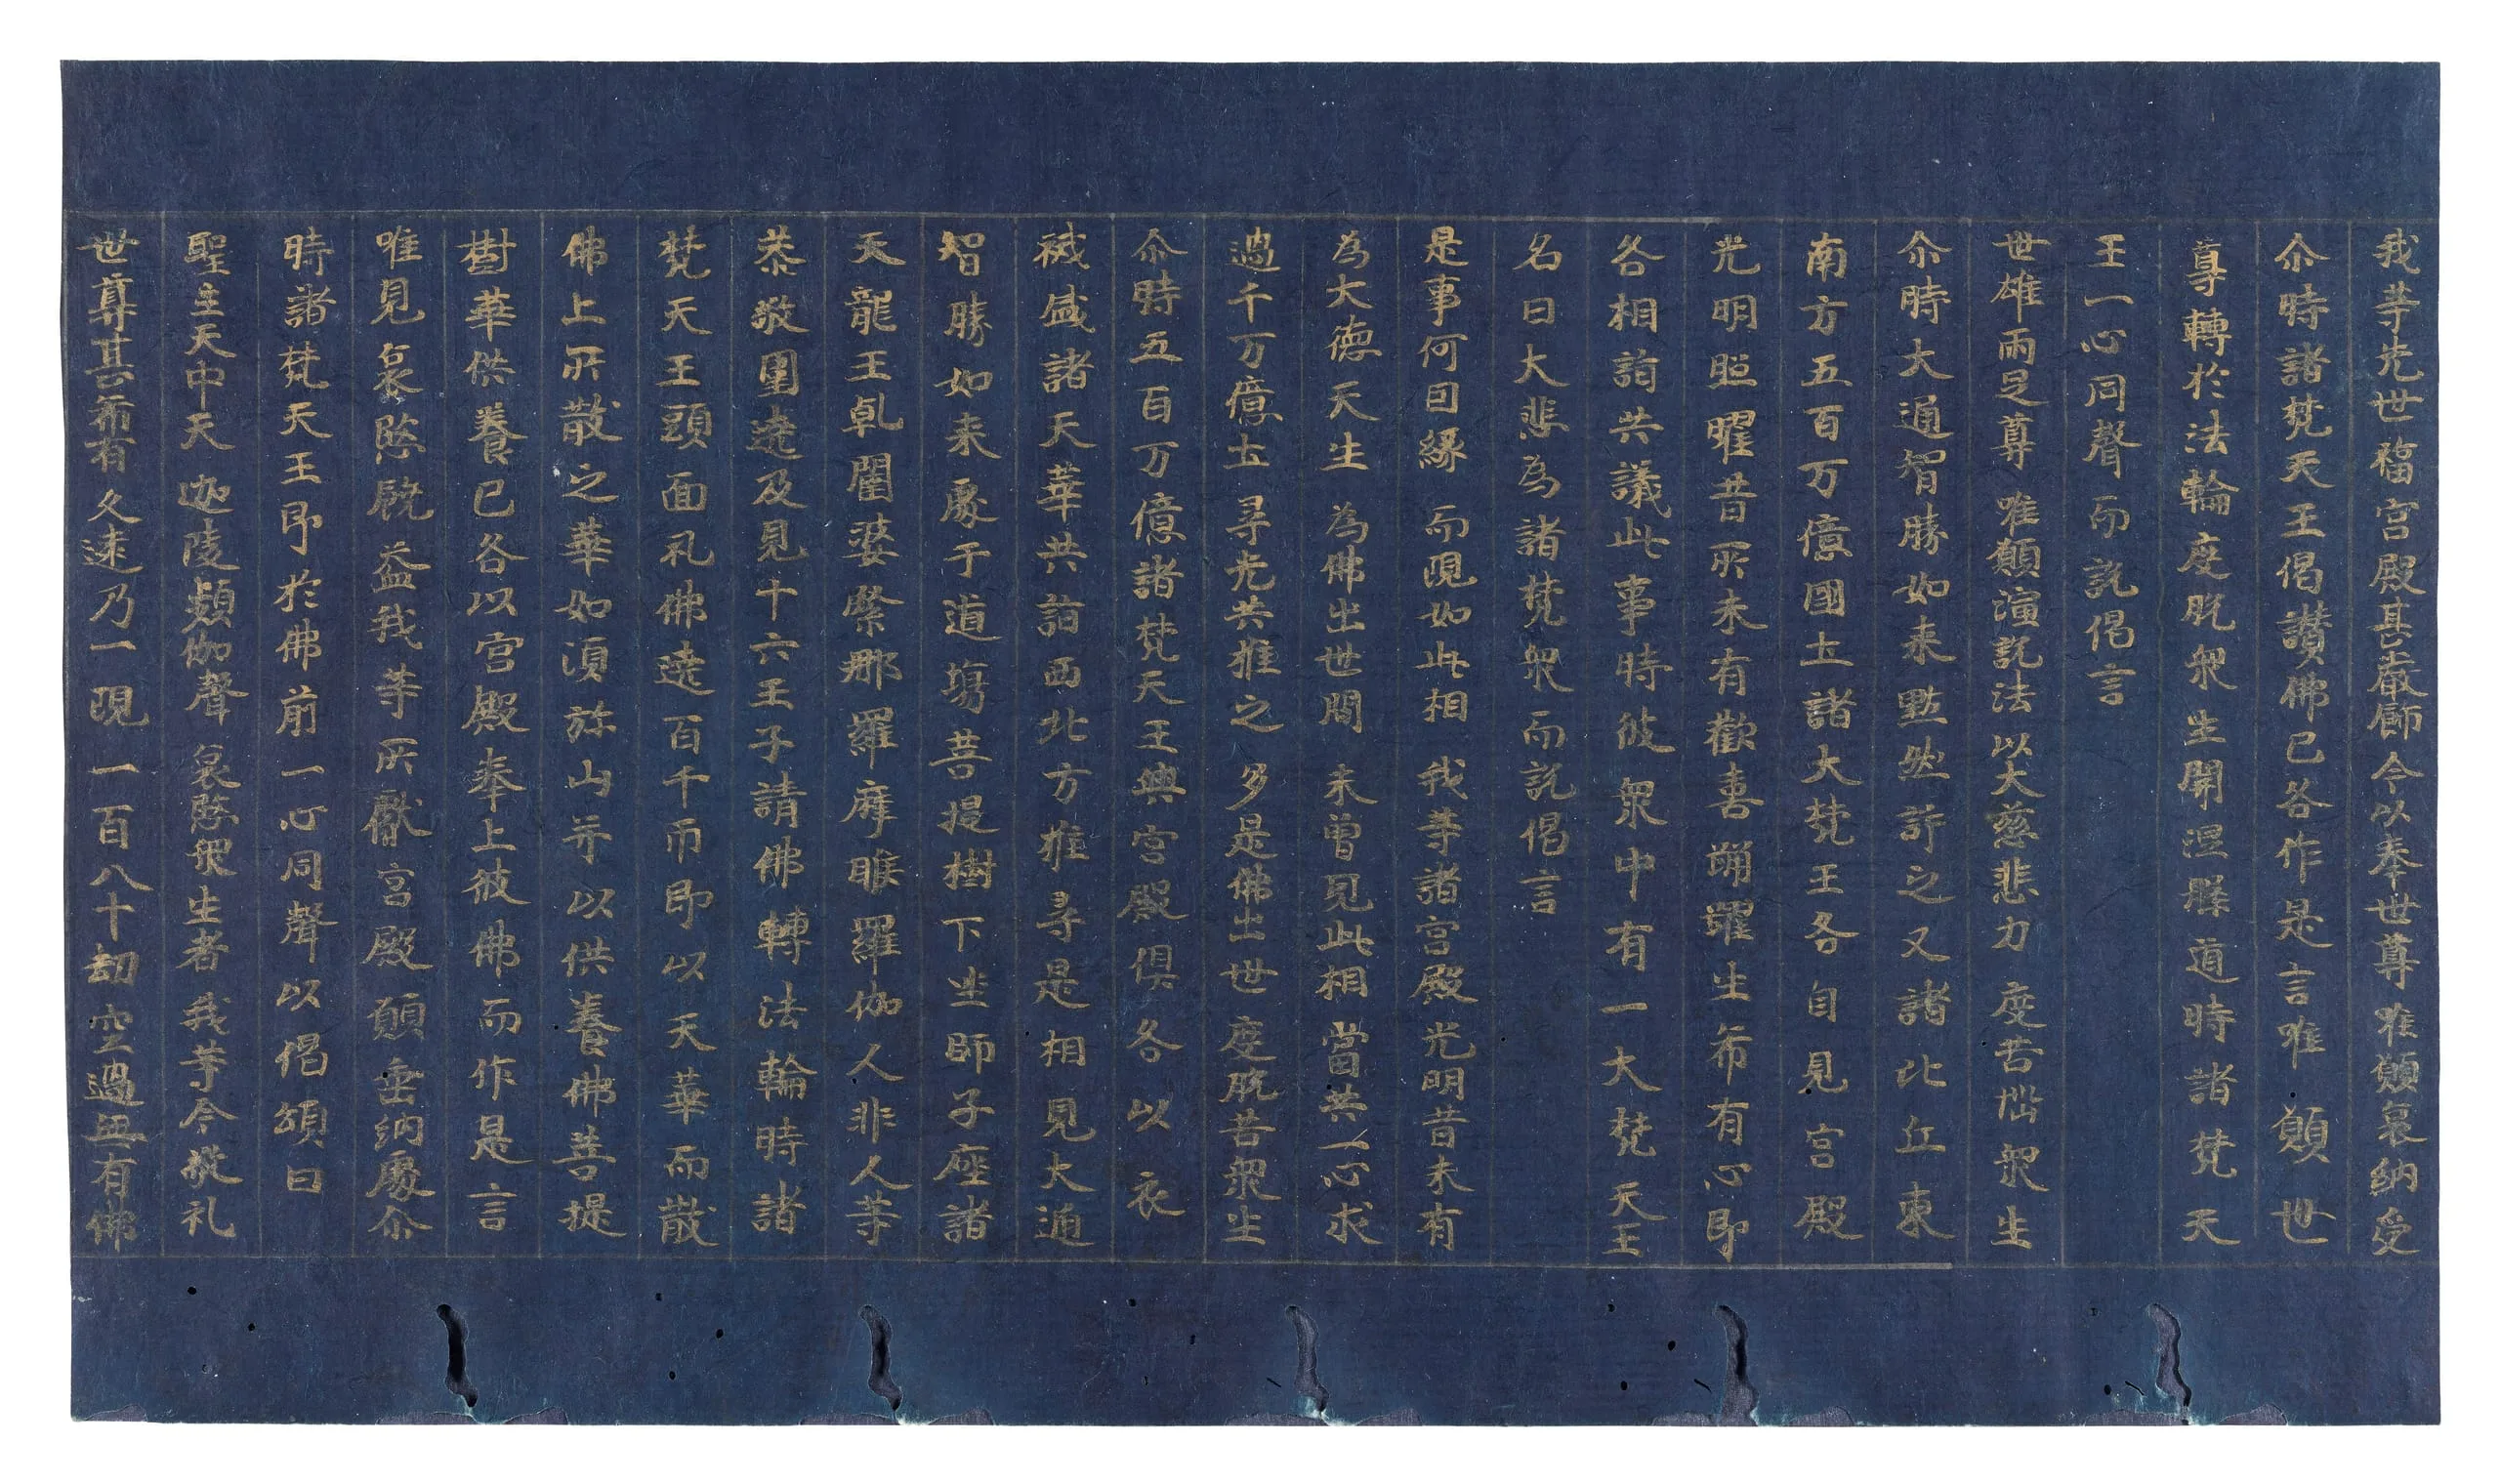 我等先世福宮殿甚嚴飾今以奉世尊唯願哀納受
尒時諸梵天王偈讃佛已各作是言唯願世
尊轉於法輪度脫衆生開涅槃道時諸梵天
王一心同聲而說偈言
世雄兩足尊唯願演說法以大慈悲力度苦惱衆生
尒時大通智勝如来黙然許之又諸比丘東
南方五百万億國土諸大梵王各自見宮殿
光明照曜昔所未有歡喜踊躍生希有心即
各相詣共議此事時彼衆中有一大梵天王
名曰大悲為諸梵衆而說偈言
是事何因緣而現如此相我等諸宮殿光明昔未有
為大德天生為佛出世間未曽見此相當共一心求
過千万億土尋光共推之多是佛出世度脫苦衆生
尒時五百万億諸梵天王與宮殿俱各以衣
裓盛諸天華共詣西北方推尋是相見大通
智勝如来處于道場菩提樹下坐師子座諸
天龍王乹闥婆緊那羅摩睺羅伽人非人等
恭敬圍遶及見十六王子請佛轉法輪時諸
梵天王頭面礼佛遶百千帀即以天華而散
佛上所散之華如湏弥山并以供養佛菩提
樹華供養已各以宮殿奉上彼佛而作是言
唯見哀愍饒益我等所獻宮殿願垂納處尒
時諸梵天王即於佛前一心同聲以偈頌曰
聖主天中天迦陵頻伽聲哀愍衆生者我等今敬礼
世尊甚希有久遠乃一現一百八十劫空過無有佛